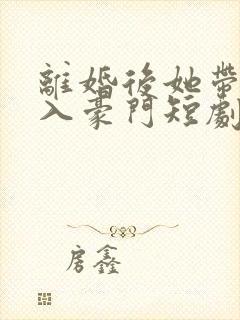 離婚後她帶
入豪門短劇
房鑫